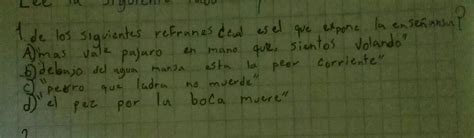 Lee la siguiente
1. de los siguientes refranes cual es el que expone la enseñansa?
A) mas vale pajaro en mano que, sientos volando"
b) debajo del agua mansa esta la peor corriente"
c) "perro que ladra no muerde"
d) "el pez por la boca muere"